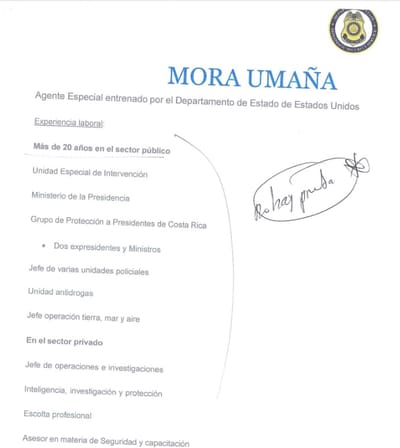 MORA UMAÑA
Agente Especial entrenado por el Departamento de Estado de Estados Unidos
Experiencia laboral:
Más de 20 años en el sector público
Unidad Especial de Intervención
Ministerio de la Presidencia
Grupo de Protección a Presidentes de Costa Rica
• Dos expresidentes y Ministros
Jefe de varias unidades policiales
Unidad antidrogas
Jefe operación tierra, mar y aire
En el sector privado
Jefe de operaciones e investigaciones
Inteligencia, investigación y protección
Escolta profesional
Asesor en materia de Seguridad y capacitación
No hay prueba